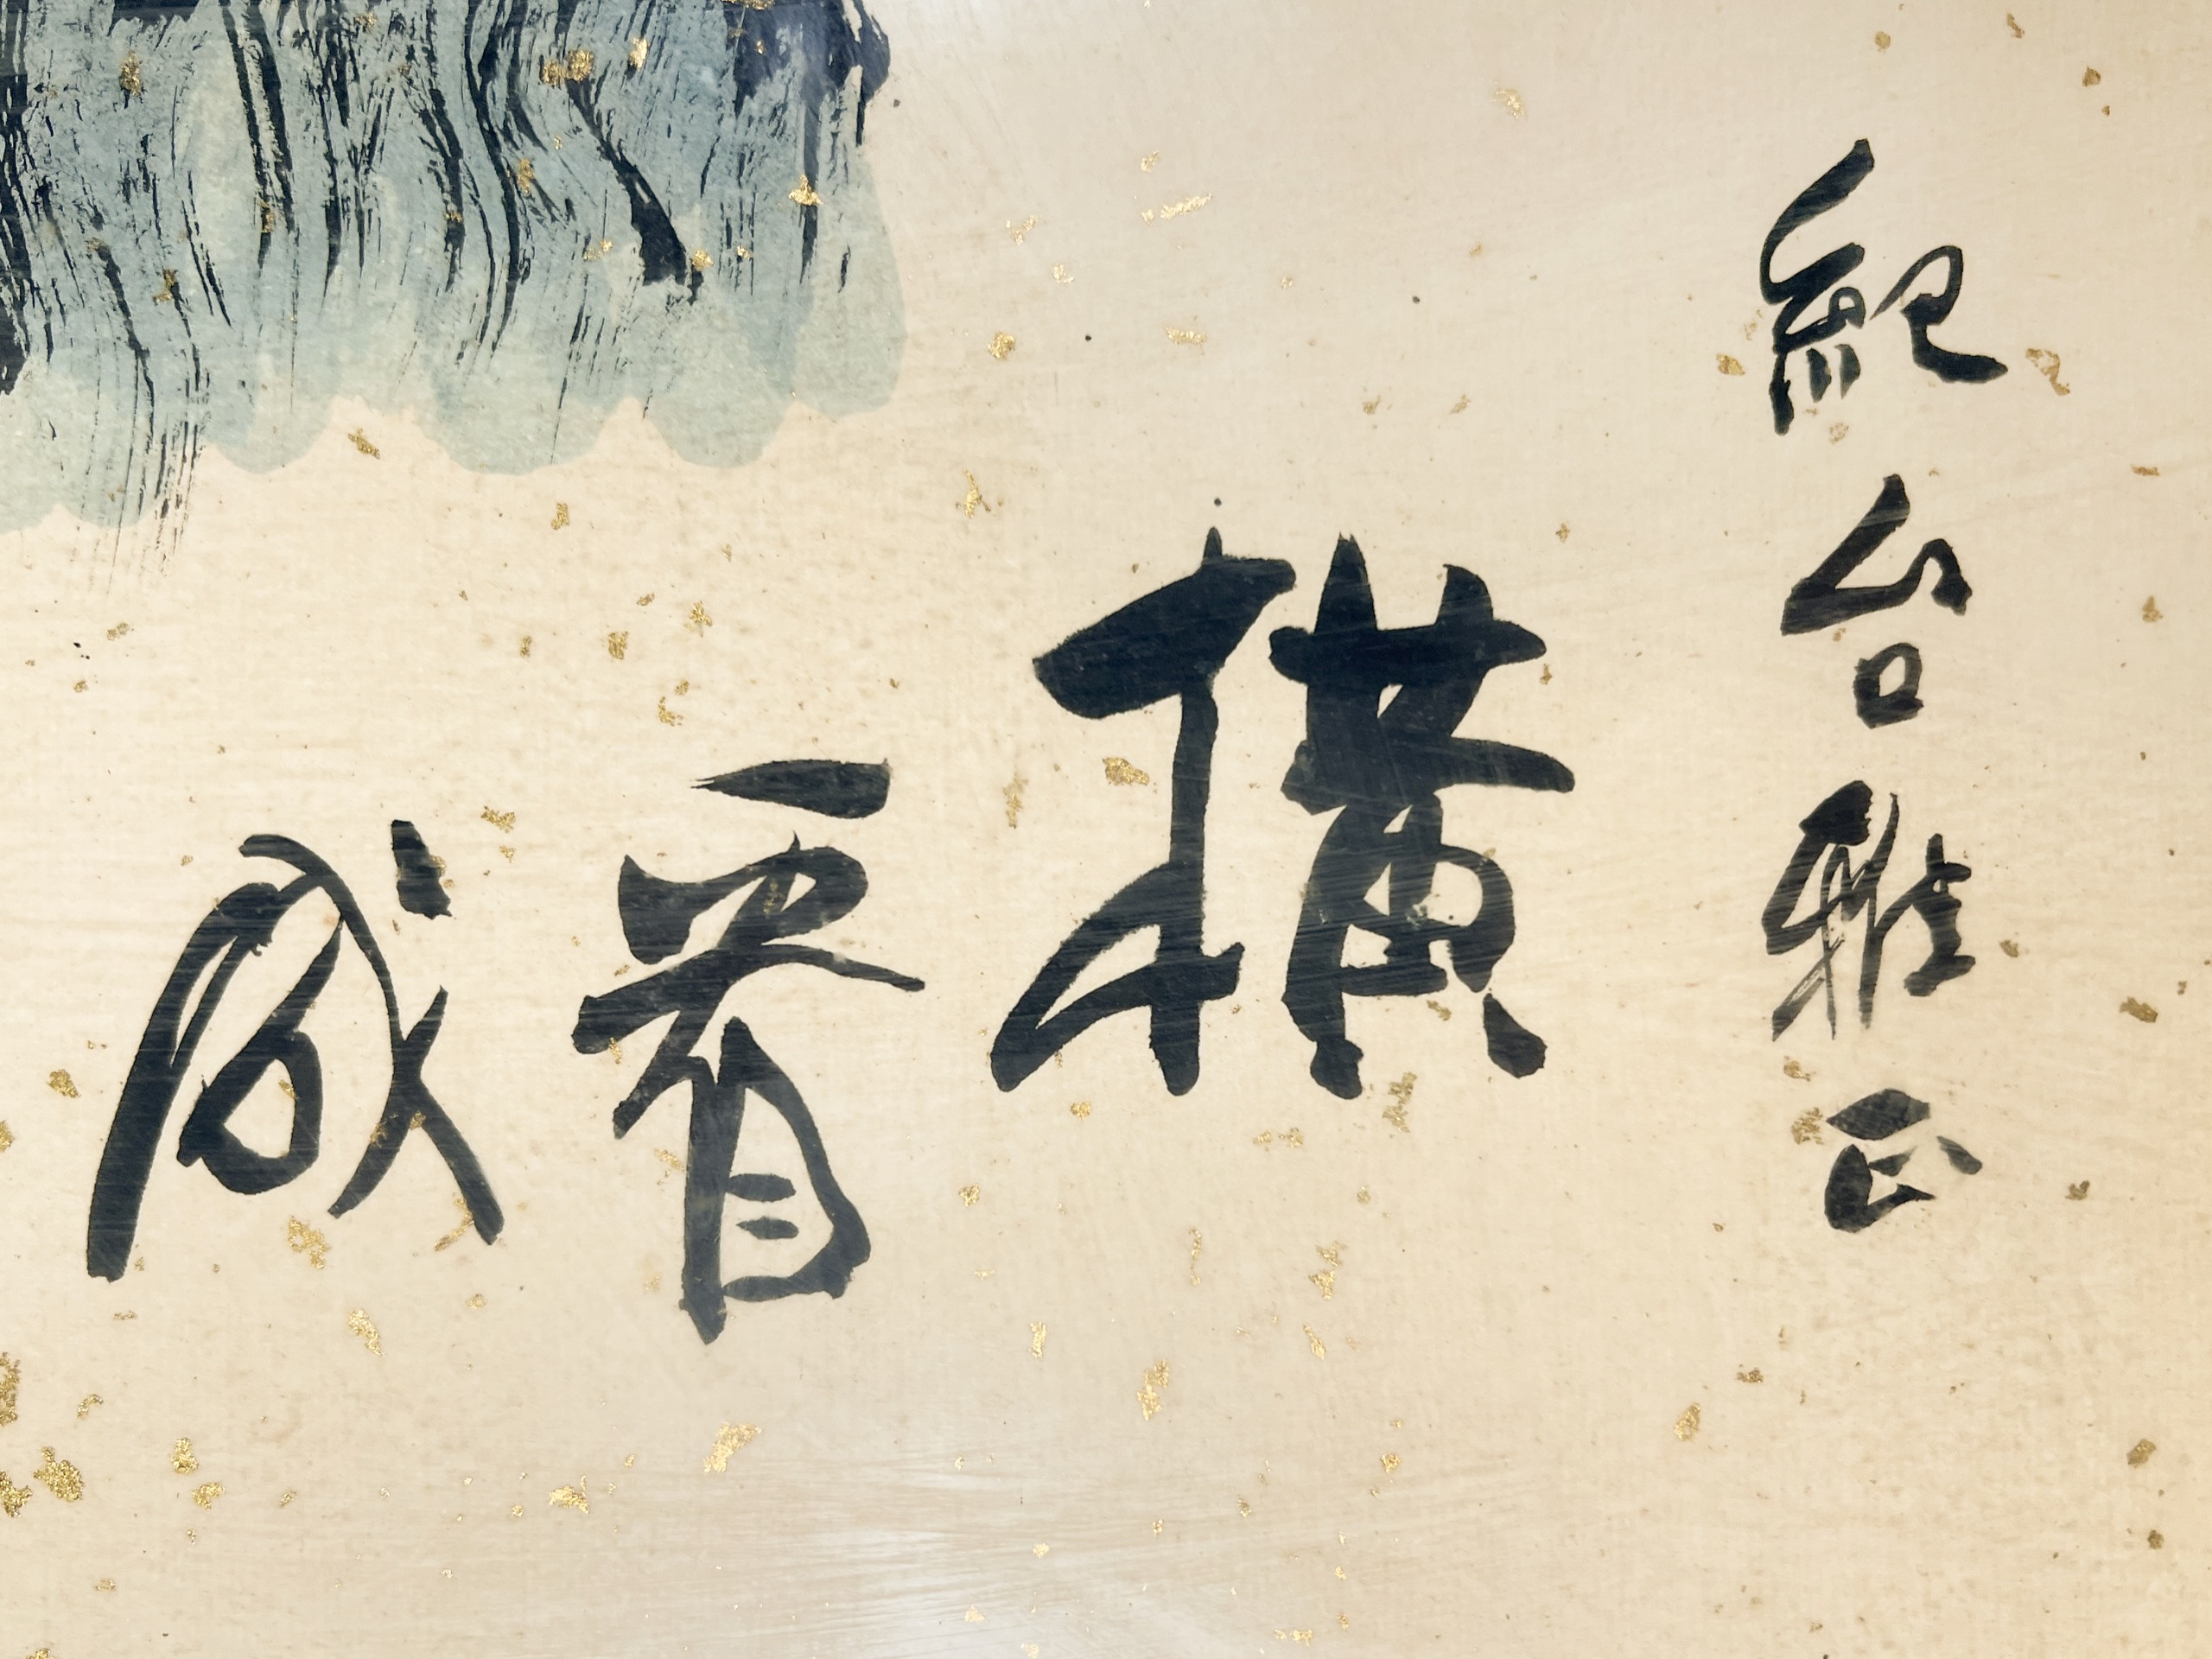 紀台雅正
橫看成